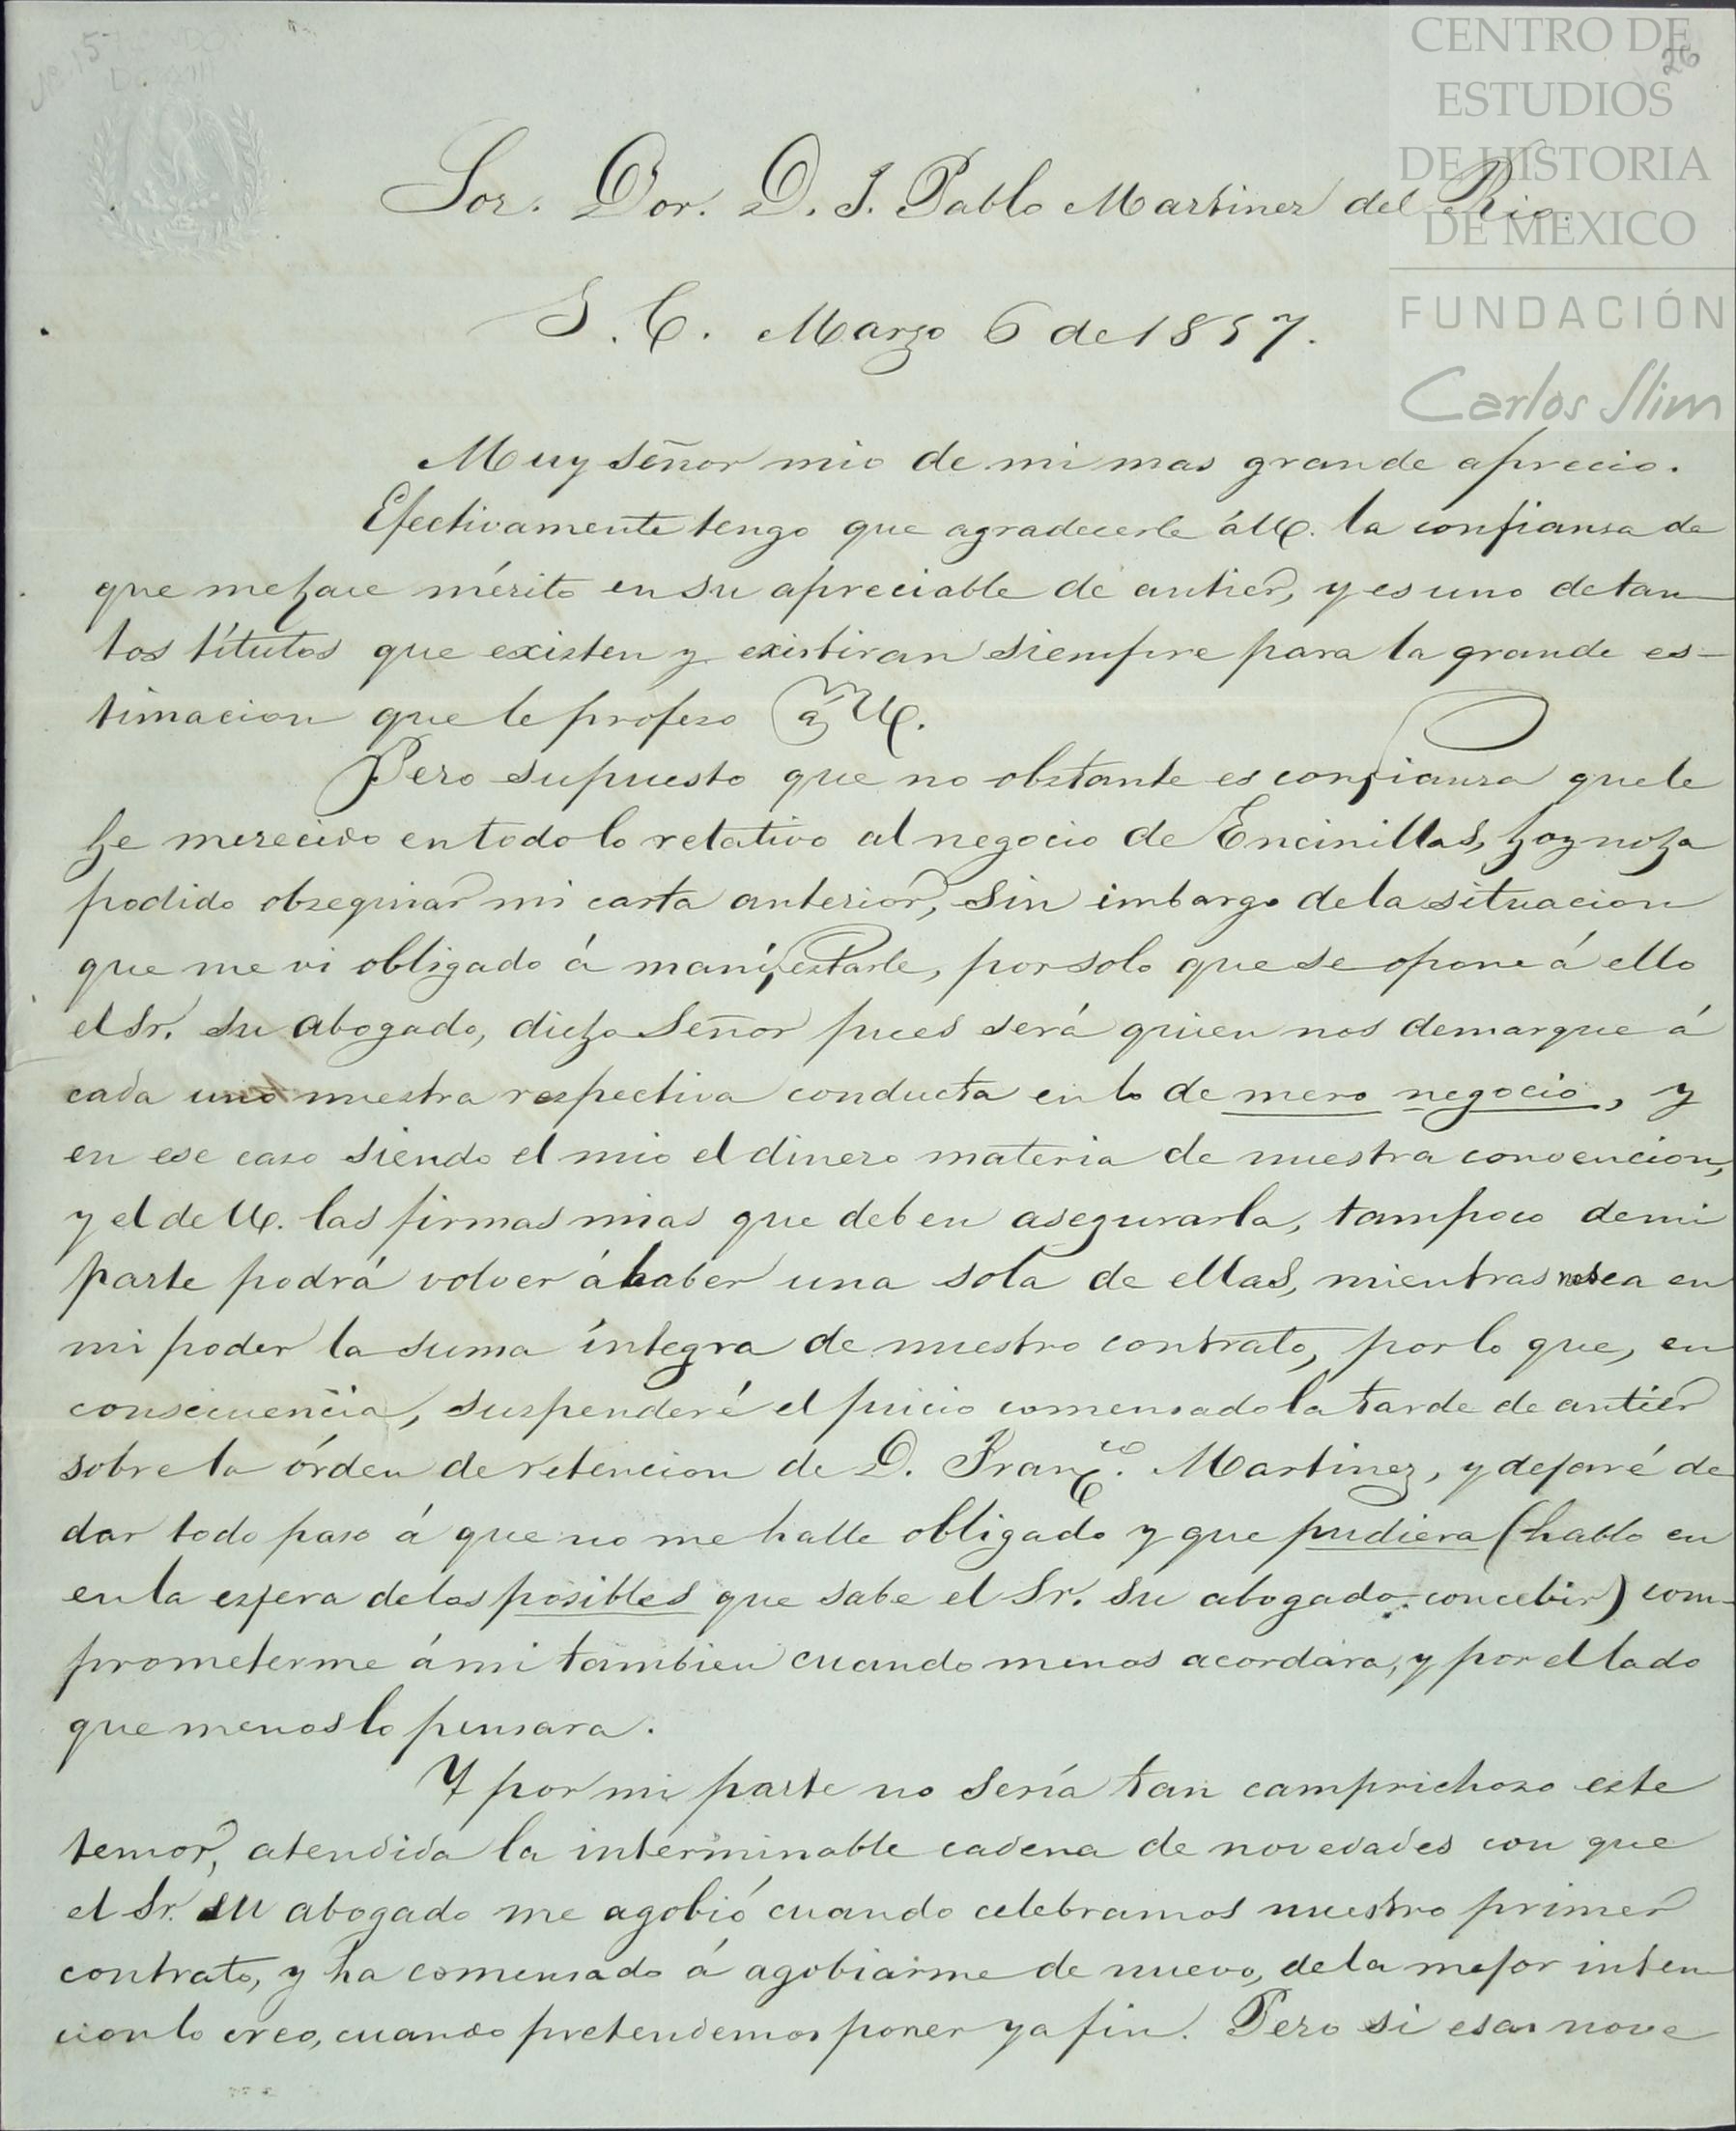 CENTRO DE
ESTUDIOS
DE HISTORIA
DE MEXICO
FUNDACIÓN
Carlos Slim
26
Sor. Dor. D. J. Pablo Martinez del Rio.
S. C. Marzo 6 de 1857.
Muy señor mio de mi mas grande aprecio.
Efectivamente tengo que agradecerle á U. la confiansa de
que me hace mérito en su apreciable de antier, y es uno de tan
tos títulos que existen y existiran siempre para la grande es-
timacion que le profeso á U.
Pero supuesto que no obstante es confiansa que le
he merecido en todo lo relativo al negocio de Encinillas, hoy no ha
podido obsequiar mi carta anterior, sin imbargo de la situacion
que me vi obligado á manifestarle, por solo que se opone á ello
el Sr. su abogado, dicho Señor pues será quien nos demarque á
cada uno nuestra respectiva conducta en lo de mero negocio, y
en ese caso siendo el mio el dinero materia de nuestra convencion,
y el de U. las firmas mias que deben asegurarla, tampoco de mi
parte podrá volver á haber una sola de ellas, mientras no sea en
mi poder la suma íntegra de nuestro contrato, por lo que, en
consecuencia, suspenderé el juicio comensado la tarde de antier
sobre la órden de retencion de D. Franco. Martinez, y dejaré de
dar todo paso á que no me halle obligado y que pudiera (hablo en
en la esfera de los posibles que sabe el Sr. su abogado concebir) com-
prometerme á mi tambien cuando menos acordára, y por el lado
que menos lo pensara.
Y por mi parte no sería tan camprichoso este
temor, atendida la interminable cadena de novedades con que
el Sr. su abogado me agobió cuando celebramos nuestro primer
contrato, y ha comensado á agobiarme de nuevo, de la mejor inten
cion lo creo, cuando pretendemos poner ya fin. Pero si esas nove